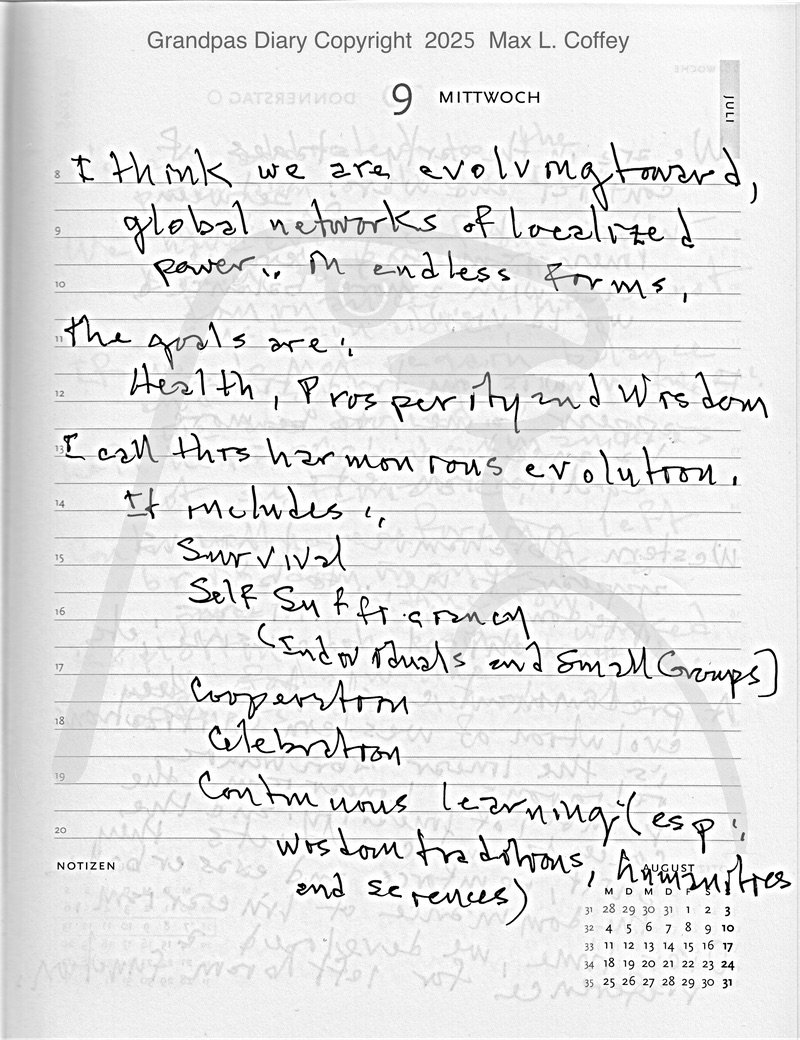 Grandpas Diary Copyright 2025 Max L. Coffey
9 MITTWOCH
JULI
8 I think we are evolving toward,
9 global networks of localized
10 power:. in endless forms,
11 The goals are:,
12 Health, Prosperity and Wisdom
13 I call this harmonious evolution.
14 It includes:,
15 Survival
16 Self Sufficiency
(Individuals and Small Groups)
17 Cooperation
18 Celebration
19 Continuous learning (esp:
20 wisdom traditions, humanities
and sciences)
NOTIZEN
AUGUST
M D M D F S S
31 28 29 30 31 1 2 3
32 4 5 6 7 8 9 10
33 11 12 13 14 15 16 17
34 18 19 20 21 22 23 24
35 25 26 27 28 29 30 31